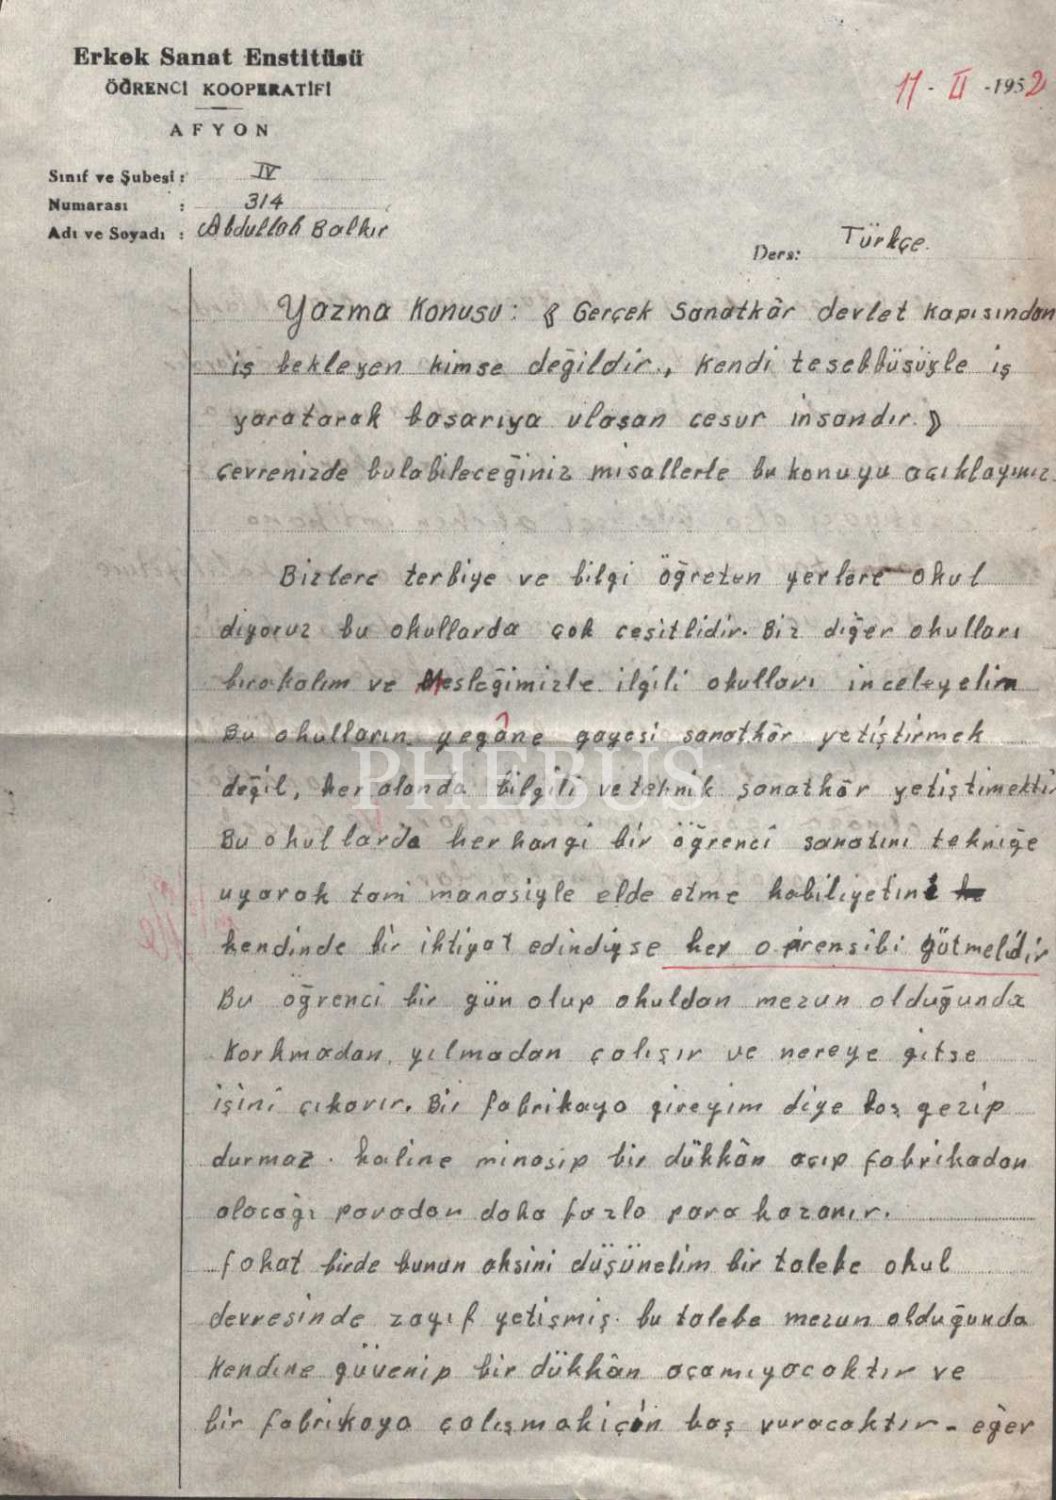 Erkek Sanat Enstitüsü
ÖĞRENCİ KOOPERATİFİ
AFYON
11 - II - 1952
Sınıf ve Şubesi : IV
Numarası : 314
Adı ve Soyadı : Abdullah Balkır
Ders: Türkçe.
Yazma Konusu : « Gerçek Sanatkâr devlet kapısından
iş bekleyen kimse değildir., Kendi tesebbüsüyle iş
yaratarak basarıya ulaşan cesur insandır. »
çevrenizde bulabileceğiniz misallerle bu konuyu açıklayınız.
Bizlere terbiye ve bilgi öğreten yerlere okul
diyoruz bu okullarda çok ceşitlidir. Biz diğer okulları
bırakalım ve Mesleğimizle ilgili okulları inceleyelim
Bu okulların yegâne gayesi sanatkâr yetiştirmek
değil, her alanda bilgili ve teknik sanatkâr yetiştimektir
PHEBUS
Bu okullarda her hangi bir öğrenci sanatını tekniğe
uyarak tam manasiyle elde etme kabiliyetini
kendinde bir ihtiyat edindiyse her o prensibi gütmelidir
Bu öğrenci bir gün olup okuldan mezun olduğunda
Korkmadan, yılmadan çalışır ve nereye gitse
işini çıkarır. Bir fabrikaya gireyim diye boş gezip
durmaz. haline minasip bir dükkân açıp fabrikadan
alacağı paradan daha fazla para kazanır.
fakat birde bunun aksini düşünelim bir talebe okul
devresinde zayıf yetişmiş. bu talebe mezun olduğunda
Kendine güvenip bir dükkân açamıyacaktır ve
bir fabrikaya çalışmakiçin baş vuracaktır - eğer